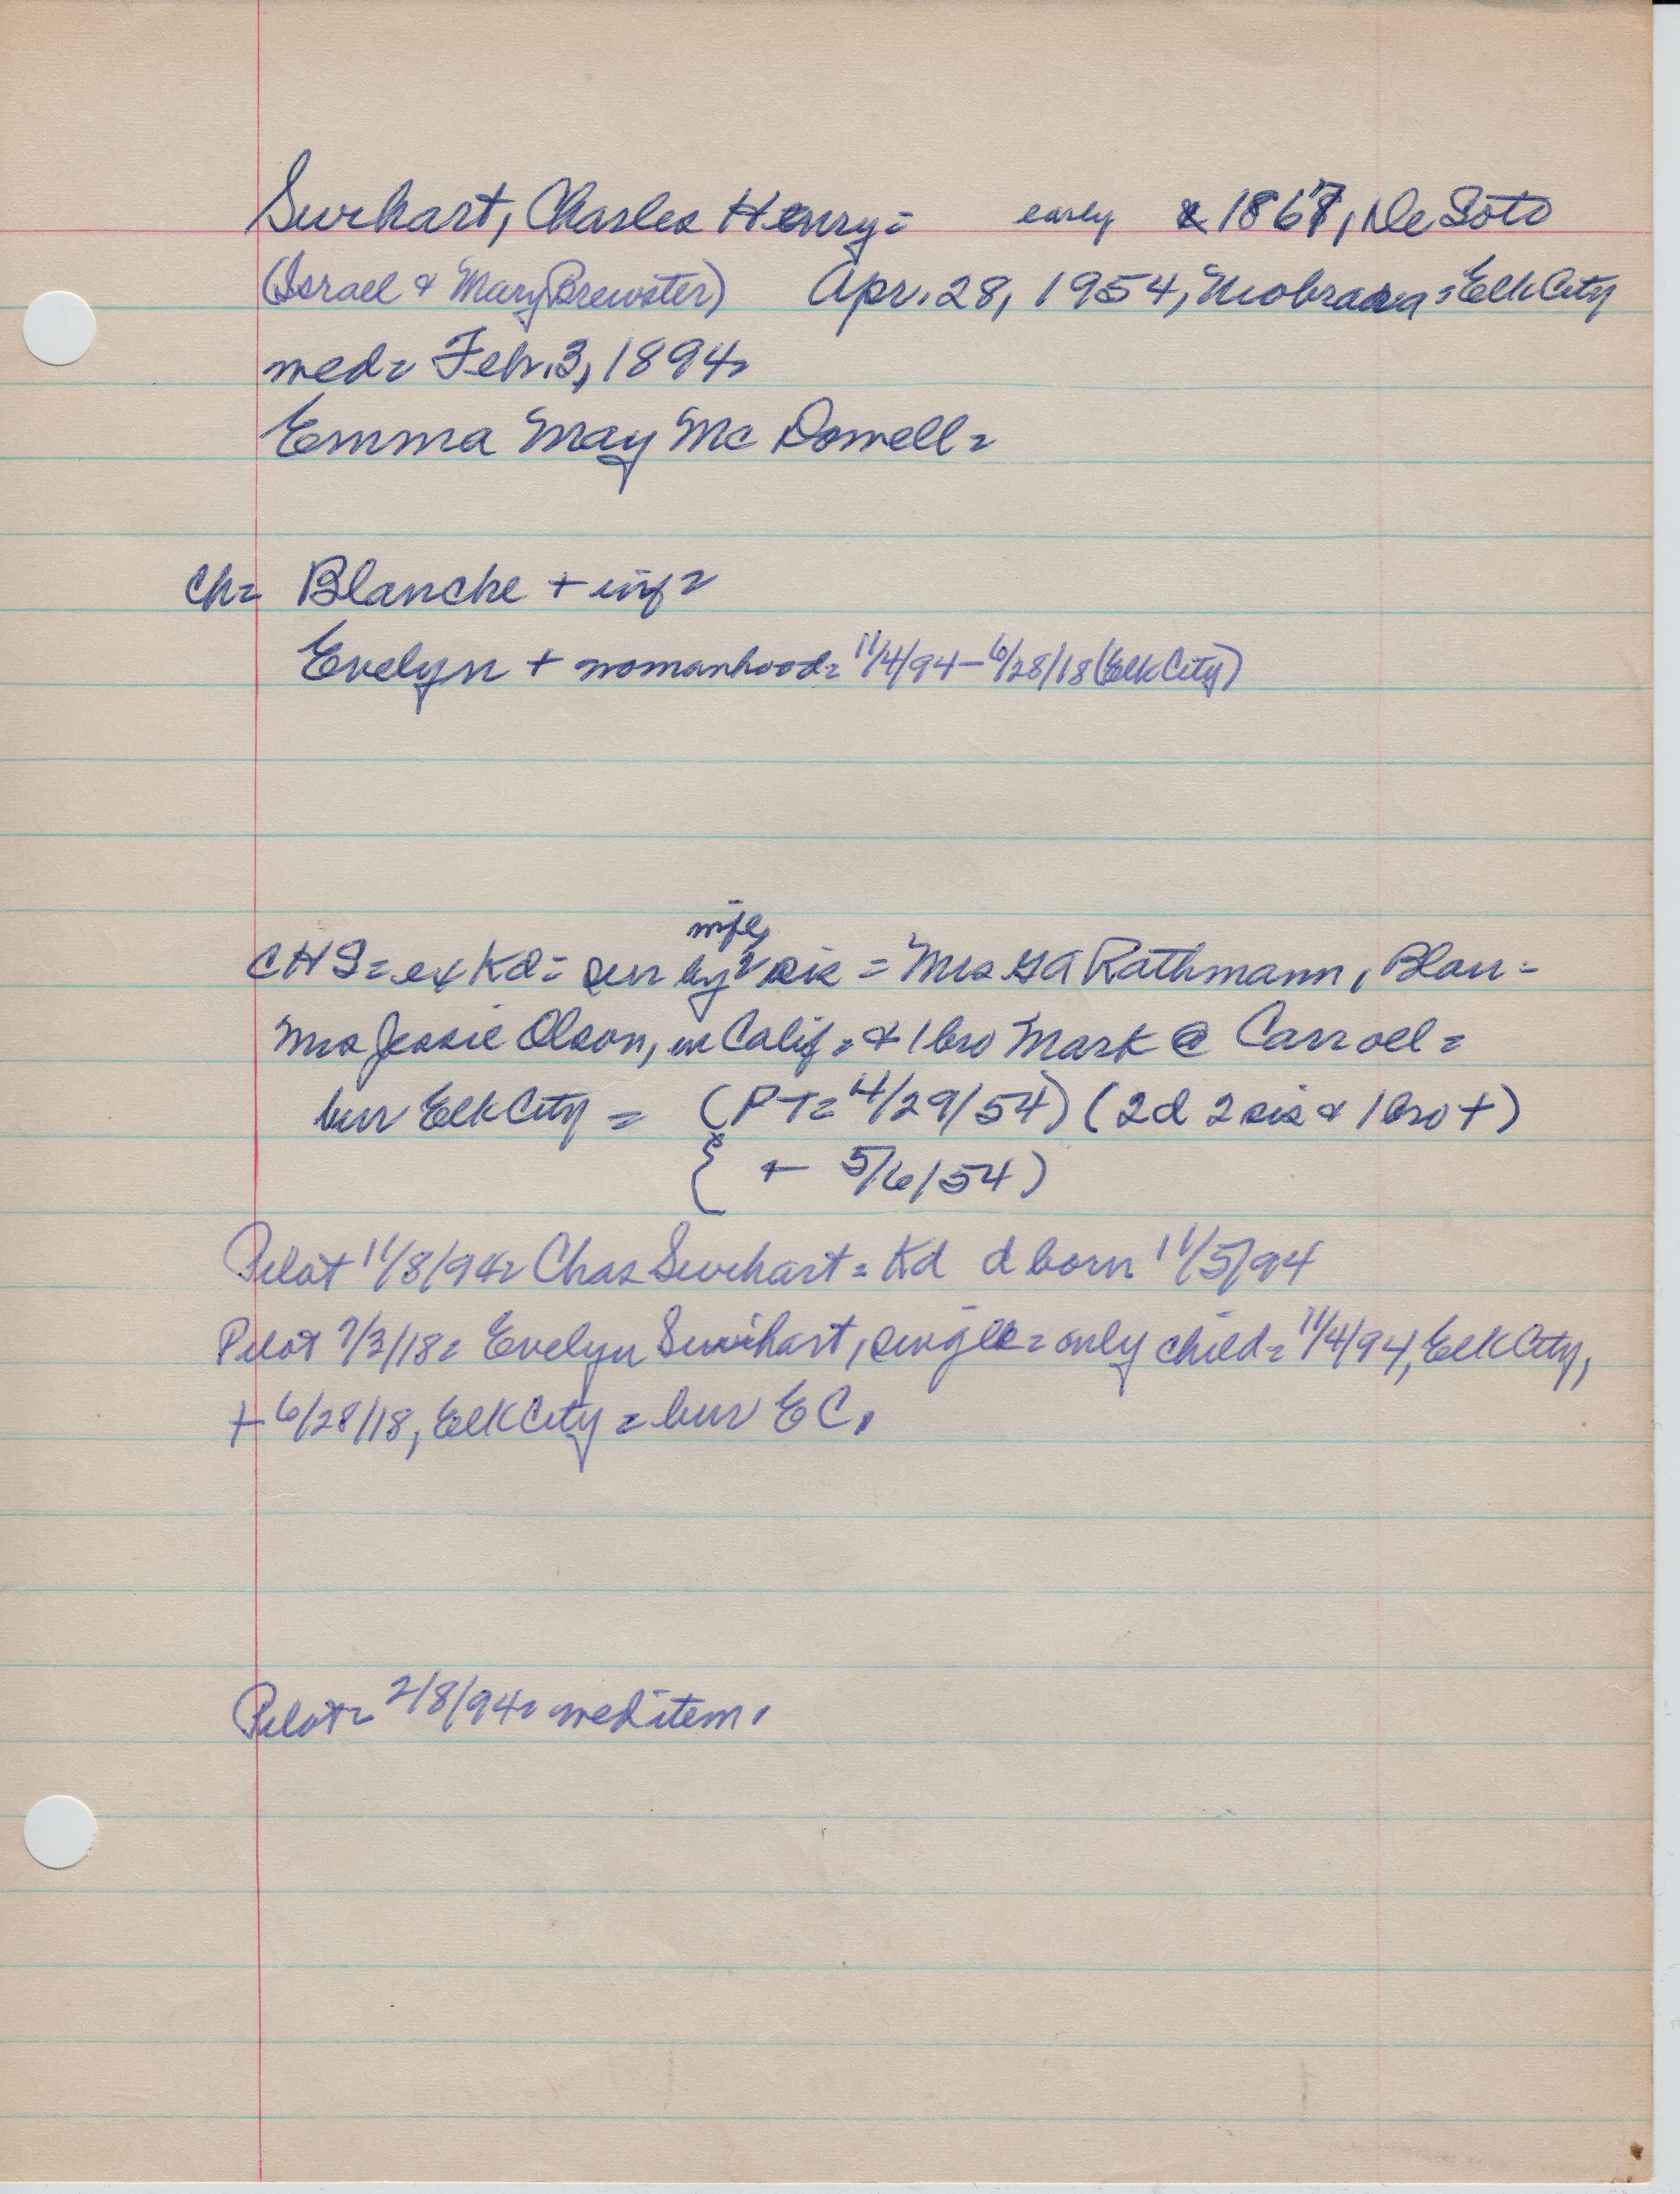 Swihart, Charles Henry = early & 1867, De Soto
(Israel & Mary Brewster) Apr. 28, 1954, Niobrara = Elk City
wed = Feb. 3, 1894 =
Emma May McDowell =
Ch = Blanche + inf =
Evelyn + womanhood = 11/4/94 - 6/28/18 (Elk City)
wife,
CHS = ex Kd = sur by 2 sis = Mrs GA Rathmann, Blair =
Mrs Jessie Olson, in Calif. = & 1 bro Mark @ Carroll =
bur Elk City = (PT = 4/29/54) (2d 2 sis & 1 bro +)
{ + 5/6/54)
Pilot 11/8/94 = Chas Swihart = Kd d born 11/5/94
Pilot 7/3/18 = Evelyn Swihart, single = only child = 11/4/94, Elk City,
+ 6/28/18, Elk City = bur EC.
Pilot = 2/8/94 = wed item.